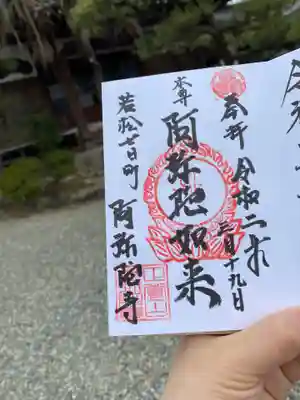 奉拝 令和二年
三月十九日
本尊
阿弥陀如来
若松七日町
阿弥陀寺